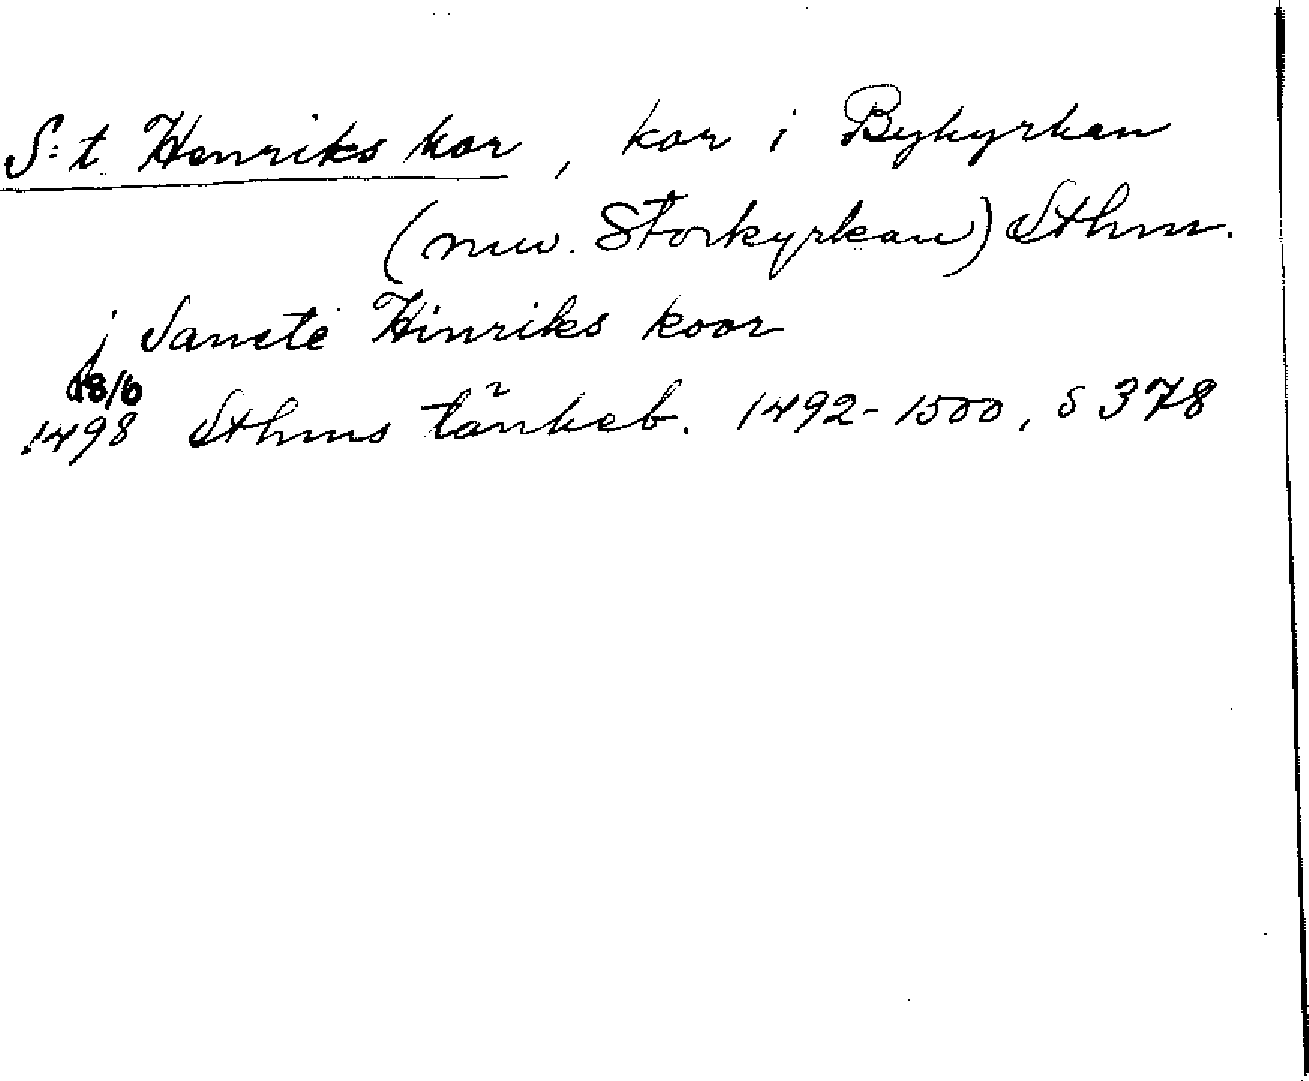 S:t Henriks kor, kor i Bykyrkan
(nuv. Storkyrkan) Sthm.
j Sancte Hinriks koor
18/6
1498 Sthms tänkeb. 1492-1500, s 378